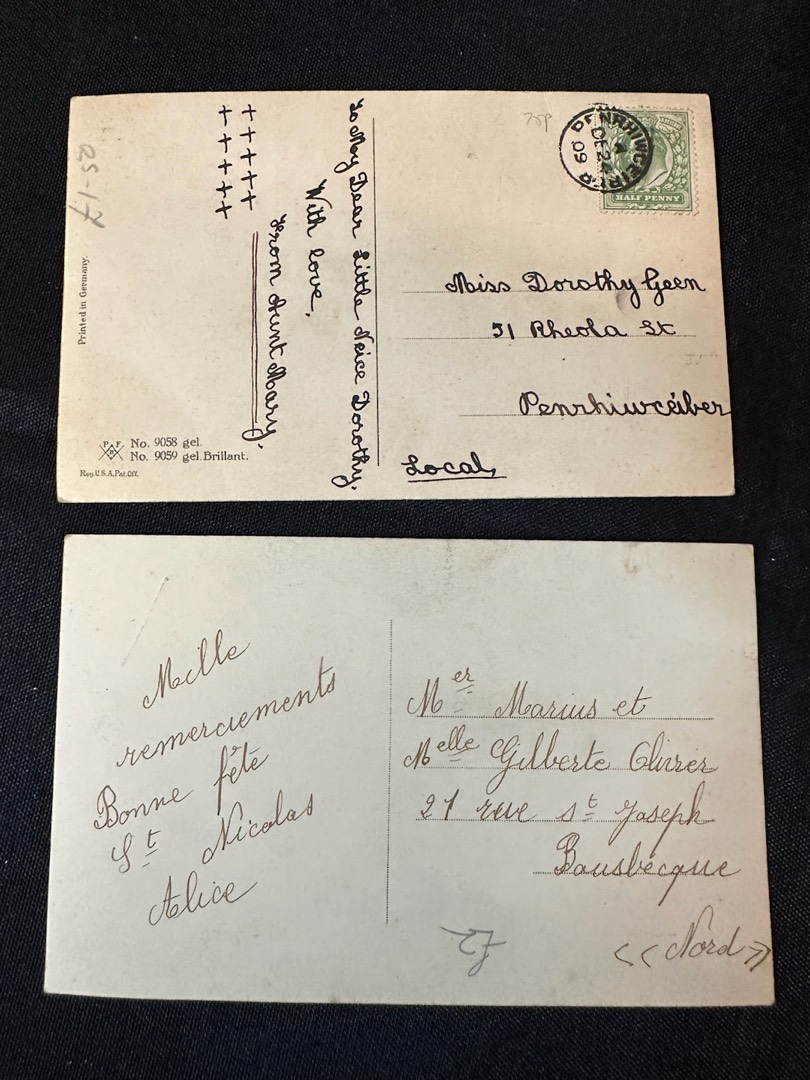 05-17
Printed in Germany.
P F
B
No. 9058 gel.
No. 9059 gel. Brillant.
Reg. U.S.A. Pat. Off.
To My Dear Little Neice Dorothy.
With love,
From Aunt Mary.
+ + + + +
+ + + + +
75P
PENRHIWCEIBER
A
DE 24
09
HALF PENNY
Miss Dorothy Geen
51 Rheola St
Penrhiwceiber
Local,
Mille
remerciements
Bonne fête
St Nicolas
Alice
Mer Marius et
Melle Gilberte Olivier
21 rue St Joseph
Bousbecque
<< Nord >>
£2